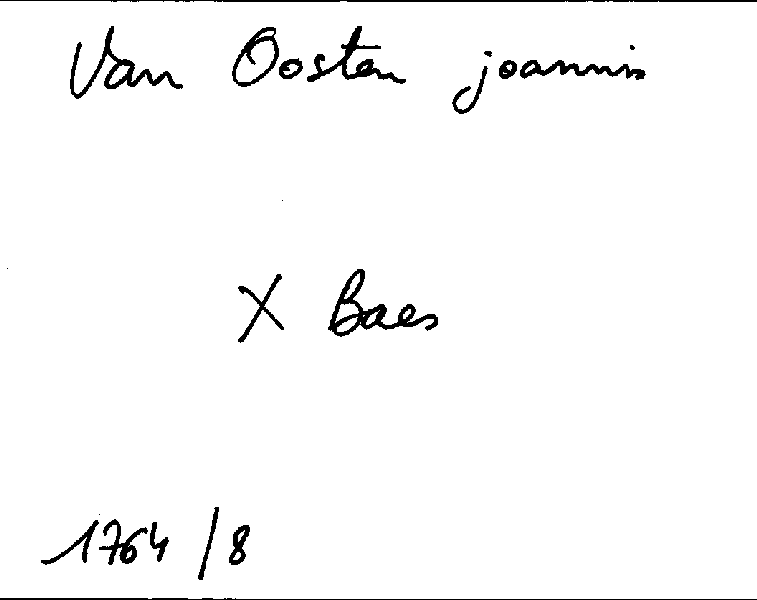 Van Oosten joannis
X Baes
1764 / 8